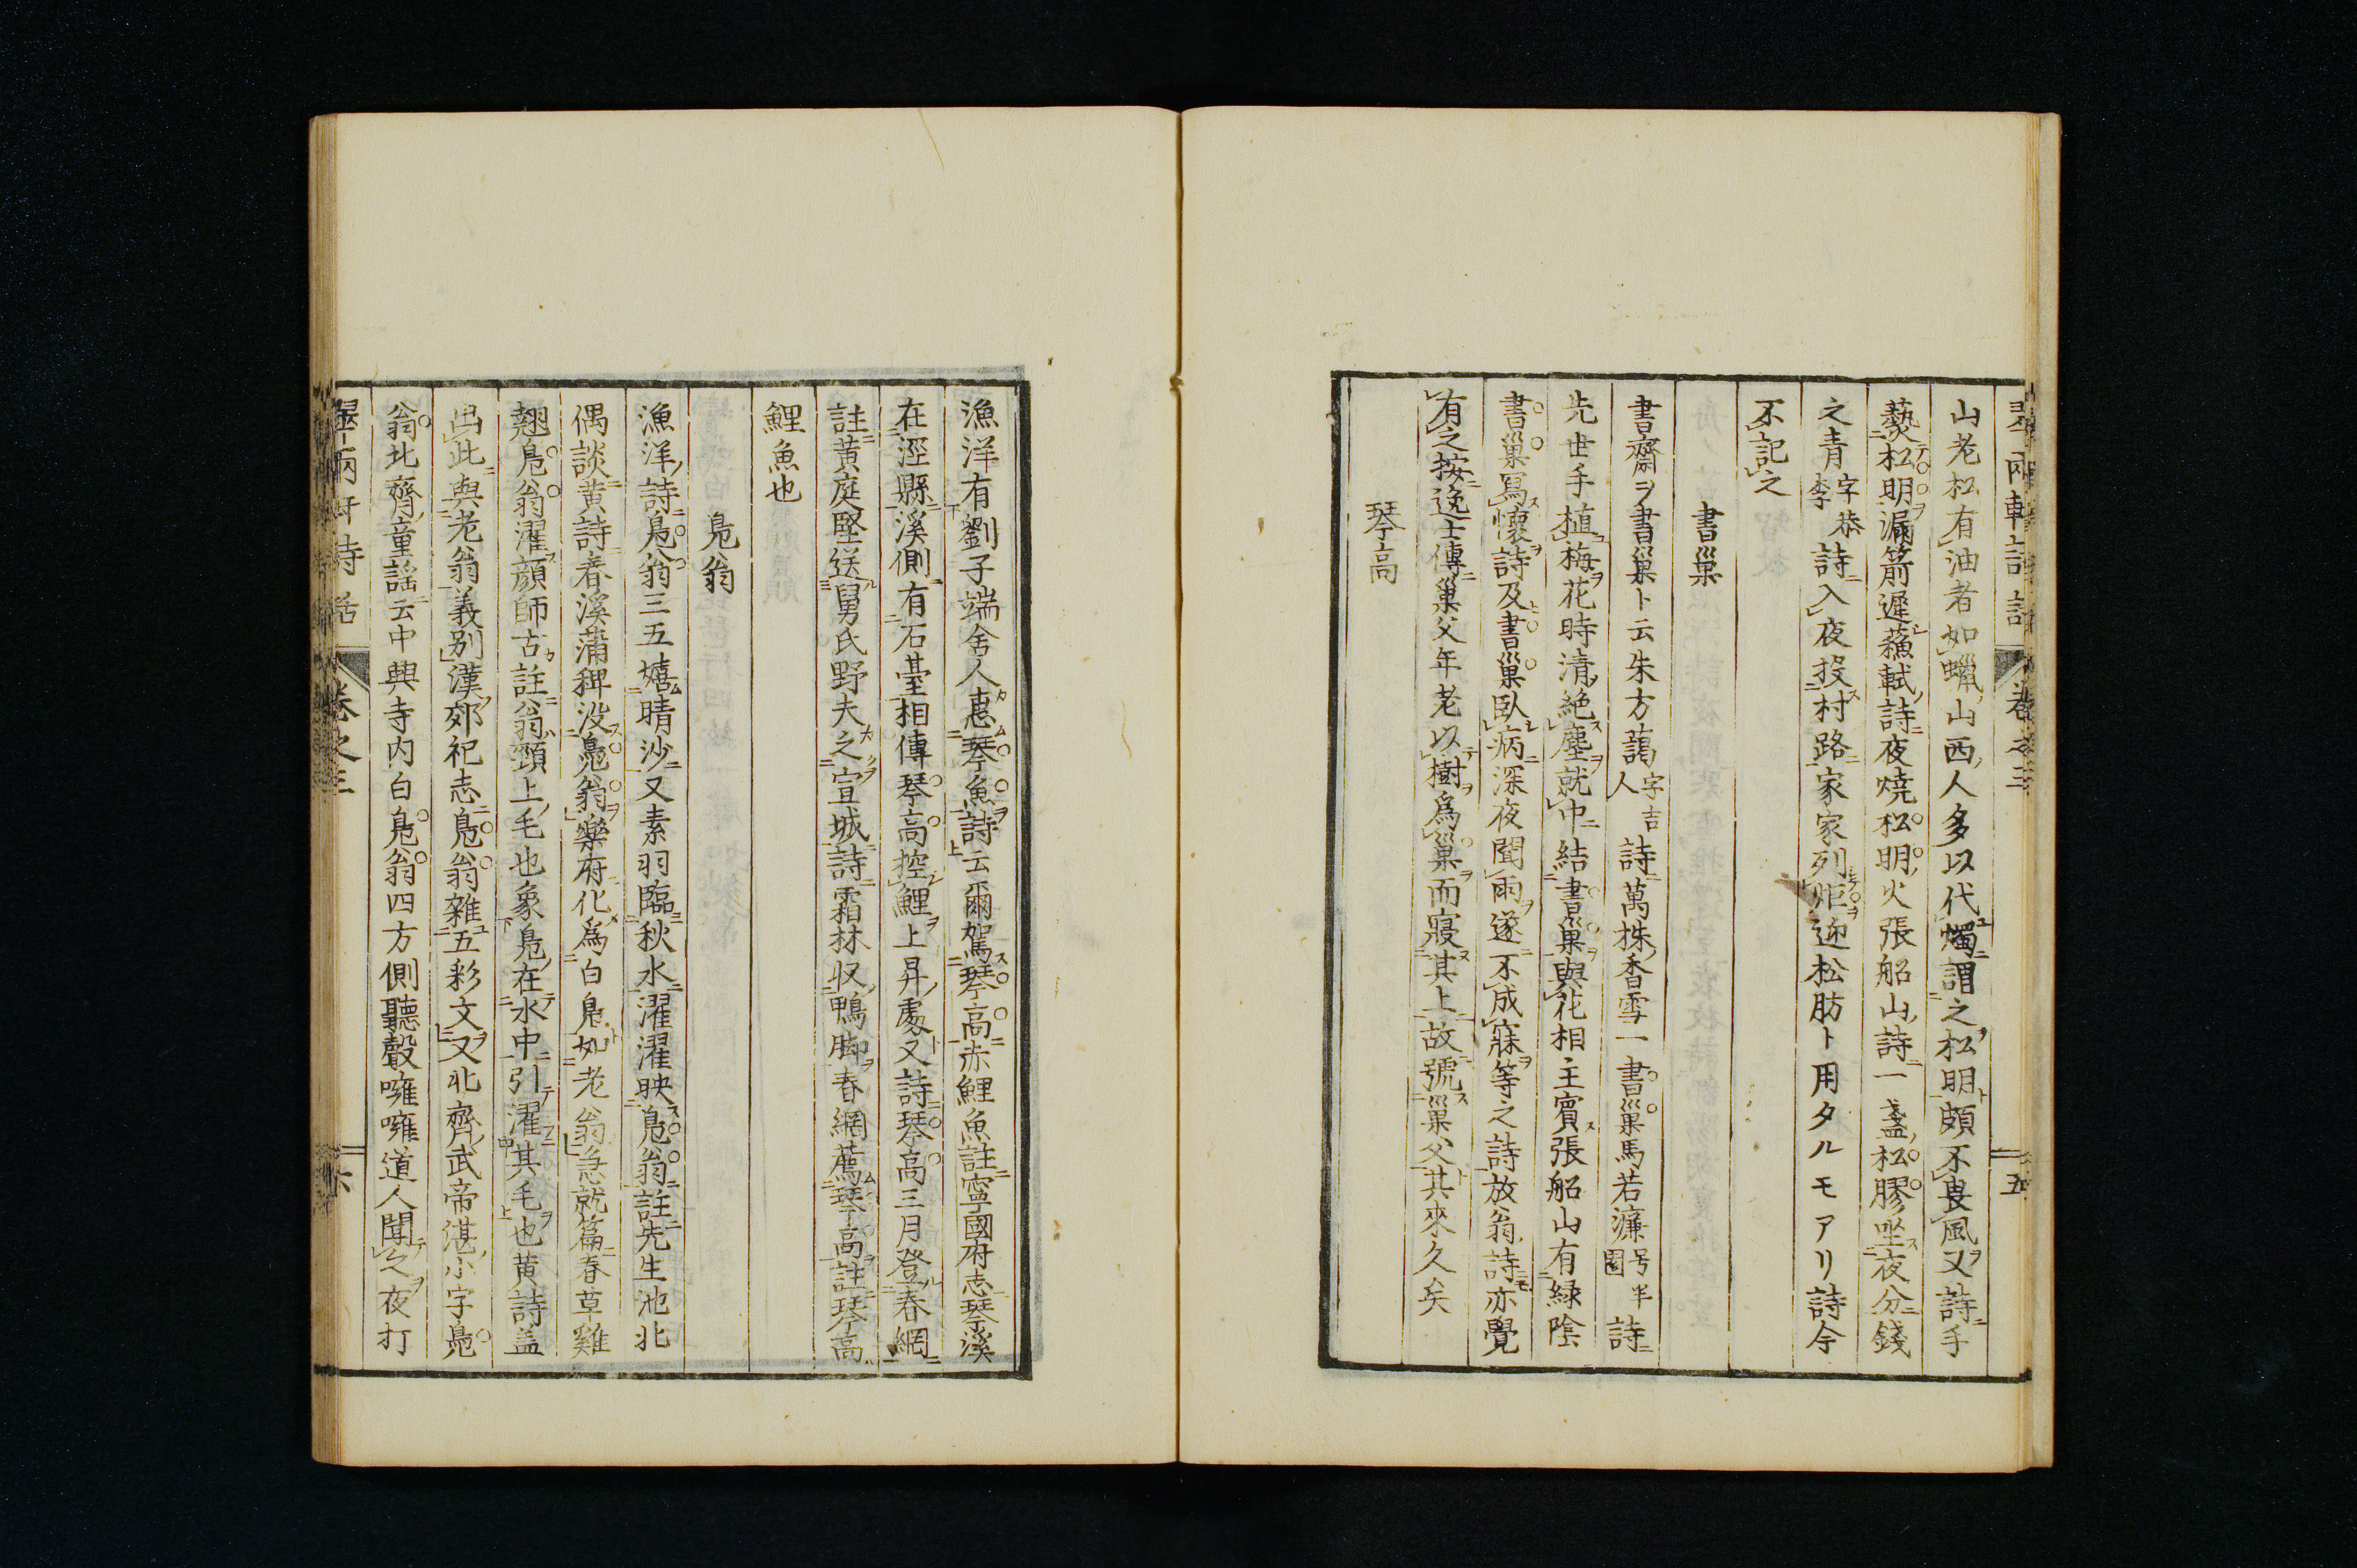 卷之三 五
山老松有油者如蠟山西人多以代燭謂之松明頗不畏風又詩手
爇松明漏箭遲蘓軾詩夜燒松明火張船山詩一盞松膠坐夜分錢
之青字恭李詩入夜投村路家家列炬迎松肪ト用タルモアリ詩今
不記之
書巢
書齋ヲ書巢ト云朱方藹字吉人詩萬株香雪一書巢馬若濂号半圃詩
先世手植梅花時清絶塵就中結書巢與花相主賓張船山有緑陰
書巢寫懷詩及書巢臥病深夜聞雨遂不成寐等之詩放翁詩亦覺
有之按逸士傳巢父年老以樹爲巢而寢其上故號巢父其來久矣
琴高
漁洋有劉子端舍人惠琴魚詩云爾駕琴高赤鯉魚註寧國府志琴溪
在涇縣溪側有石臺相傳琴高控鯉上昇處又詩琴高三月登春網
註黄庭堅送舅氏野夫之宣城詩霜林収鴨脚春網薦琴高註琴高
鯉魚也
鳧翁
漁洋詩鳧翁三五嬉晴沙又素羽臨秋水濯濯映鳧翁註先生池北
偶談黄詩春溪蒲稗没鳧翁樂府化爲白鳧如老翁急就篇春草雞
翹鳧翁濯顔師古註翁頸上毛也象鳧在水中引濯其毛也黄詩盖
出此與老翁義别漢郊祀志鳧翁雜五彩文又北齊武帝湛小字鳧
翁北齊童謡云中興寺内白鳧翁四方側聽聲嗈嗈道人聞之夜打
卷之三 六